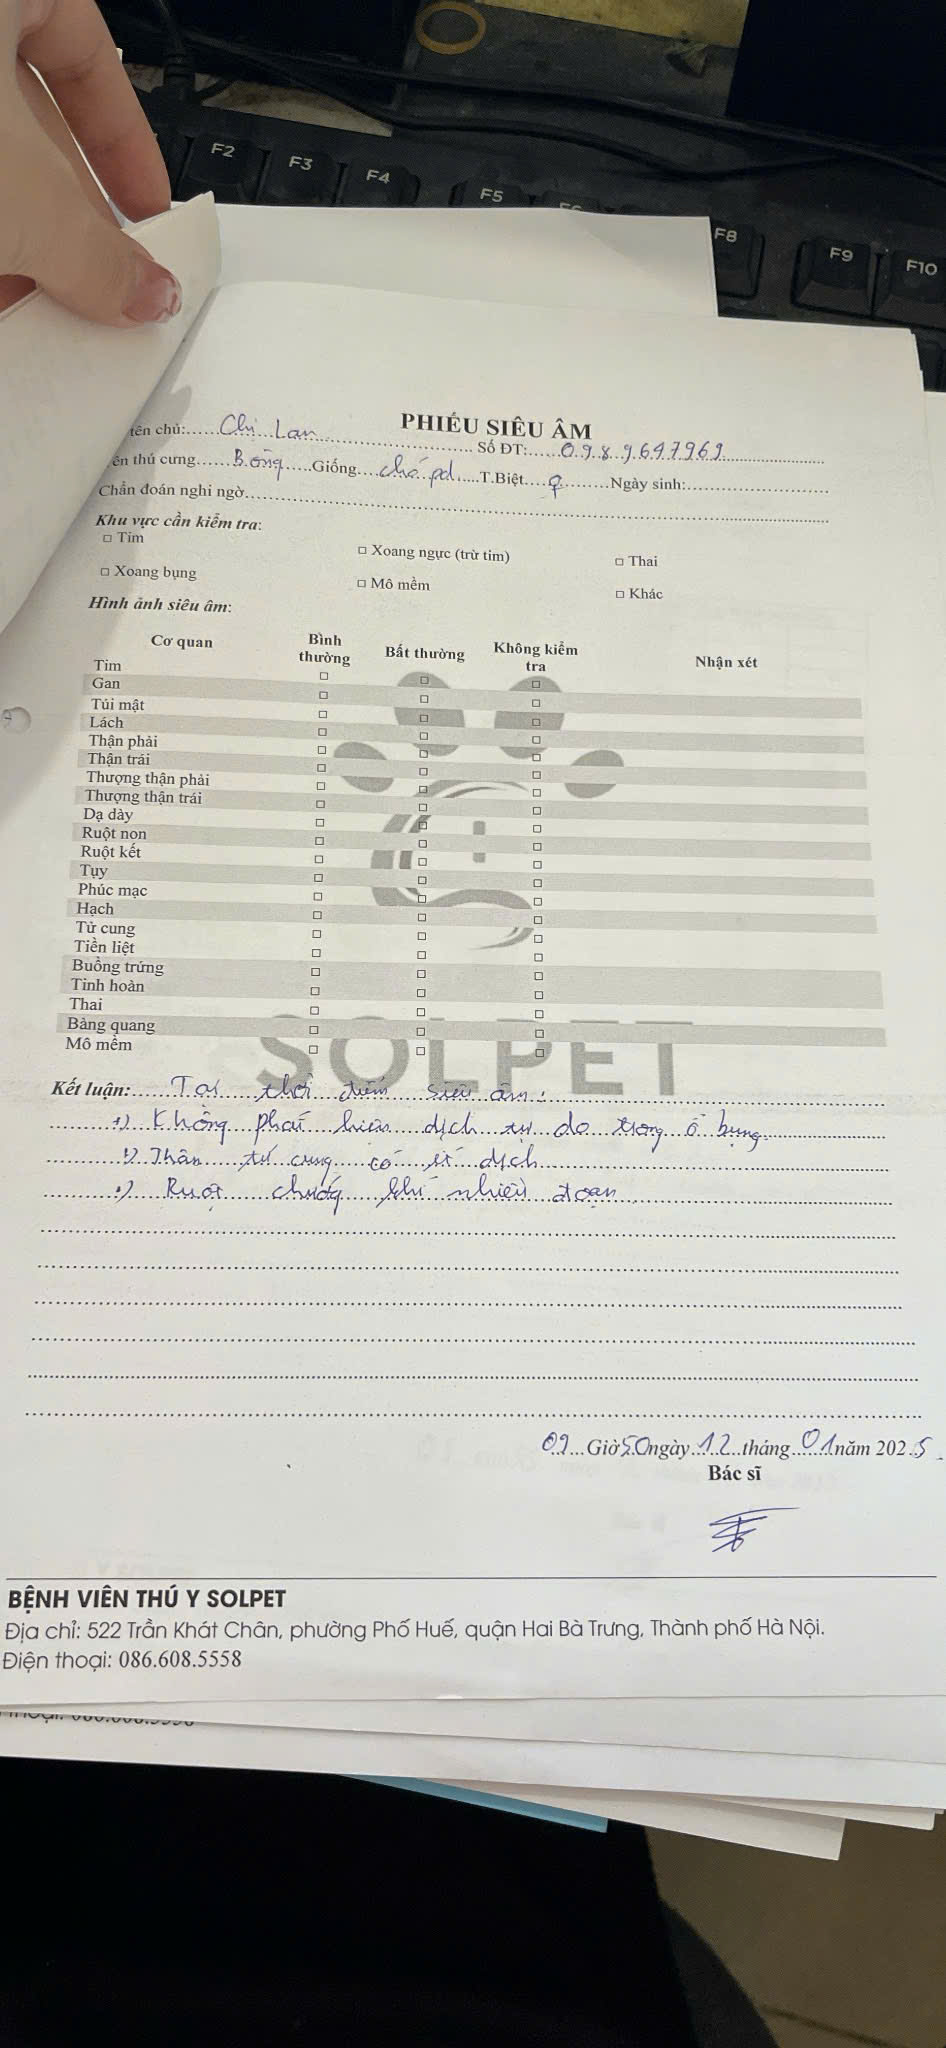 F2
F3
F4
F5
F8
F9
F10
PHIẾU SIÊU ÂM
tên chủ: Chị Lan Số ĐT: 0989647969
ên thú cưng Bông Giống chó pd T.Biệt ♀ Ngày sinh:
Chẩn đoán nghi ngờ
Khu vực cần kiểm tra:
□ Tim □ Xoang ngực (trừ tim) □ Thai
□ Xoang bụng □ Mô mềm □ Khác
Hình ảnh siêu âm:
Cơ quan Bình thường Bất thường Không kiểm tra Nhận xét
Tim □ □ □
Gan □ □ □
Túi mật □ □ □
Lách □ □ □
Thận phải □ □ □
Thận trái □ □ □
Thượng thận phải □ □ □
Thượng thận trái □ □ □
Dạ dày □ □ □
Ruột non □ □ □
Ruột kết □ □ □
Tụy □ □ □
Phúc mạc □ □ □
Hạch □ □ □
Tử cung □ □ □
Tiền liệt □ □ □
Buồng trứng □ □ □
Tinh hoàn □ □ □
Thai □ □ □
Bàng quang □ □ □
Mô mềm □ □ □
SOLPET
Kết luận: Tại thời điểm siêu âm:
+) Không phát hiện dịch tự do trong ổ bụng
+) Thân tử cung có ít dịch
+) Ruột chướng khí nhiều đoạn
09 Giờ 50 ngày 12 tháng 01 năm 2025
Bác sĩ
BỆNH VIÊN THÚ Y SOLPET
Địa chỉ: 522 Trần Khát Chân, phường Phố Huế, quận Hai Bà Trưng, Thành phố Hà Nội.
Điện thoại: 086.608.5558